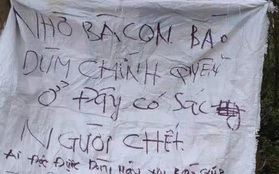 NHỜ BÀ CON BÁO
DÙM CHÍNH QUYỀN
Ở ĐÂY CÓ XÁC
NGƯỜI CHẾT
Ai Đọc Được